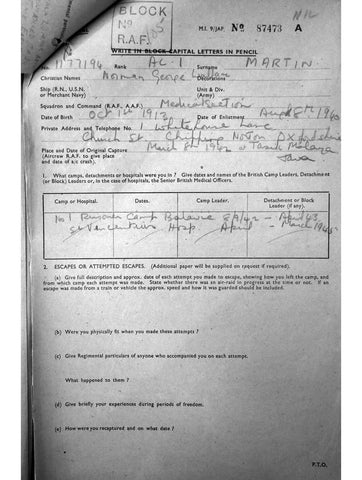 NIL
BLOCK
No
R.A.F.
M.I. 9/JAP. No 87473 A
WRITE IN BLOCK CAPITAL LETTERS IN PENCIL
No. 1177194 Rank AC.1 Surname MARTIN
Christian Names Norman George Decorations
Ship (R.N., U.S.N. or Merchant Navy) Unit & Div. (Army)
Squadron and Command (R.A.F., A.A.F.) Medical Section
Date of Birth Oct 1st 1913 Date of Enlistment Aug 8th 1940
Private Address and Telephone No. 1 Whitehouse Lane
Church St Chipping Norton Oxfordshire
Place and Date of Original Capture March 8th 1942
(Aircrew R.A.F. to give place
and date of a/c crash) Java
1. What camps, detachments or hospitals were you in? Give dates and names of the British Camp Leaders, Detachment
(or Block) Leaders or, in the case of hospitals, the Senior British Medical Officers.
Camp or Hospital. Dates. Camp Leader. Detachment or Block Leader (if any).
No 1 Prisoner Camp 8/3/42 - April 43
Hosp April - March 1945
2. ESCAPES OR ATTEMPTED ESCAPES. (Additional paper will be supplied on request if required).
(a) Give full description and approx. date of each attempt you made to escape, showing how you left the camp, and
from which camp each attempt was made. State whether there was an air-raid in progress at the time or not. If an
escape was made from a train or vehicle the approx. speed and how it was guarded should be included.
(b) Were you physically fit when you made these attempts?
(c) Give Regimental particulars of anyone who accompanied you on each attempt.
What happened to them?
(d) Give briefly your experiences during periods of freedom.
(e) How were you recaptured and on what date?
P.T.O.